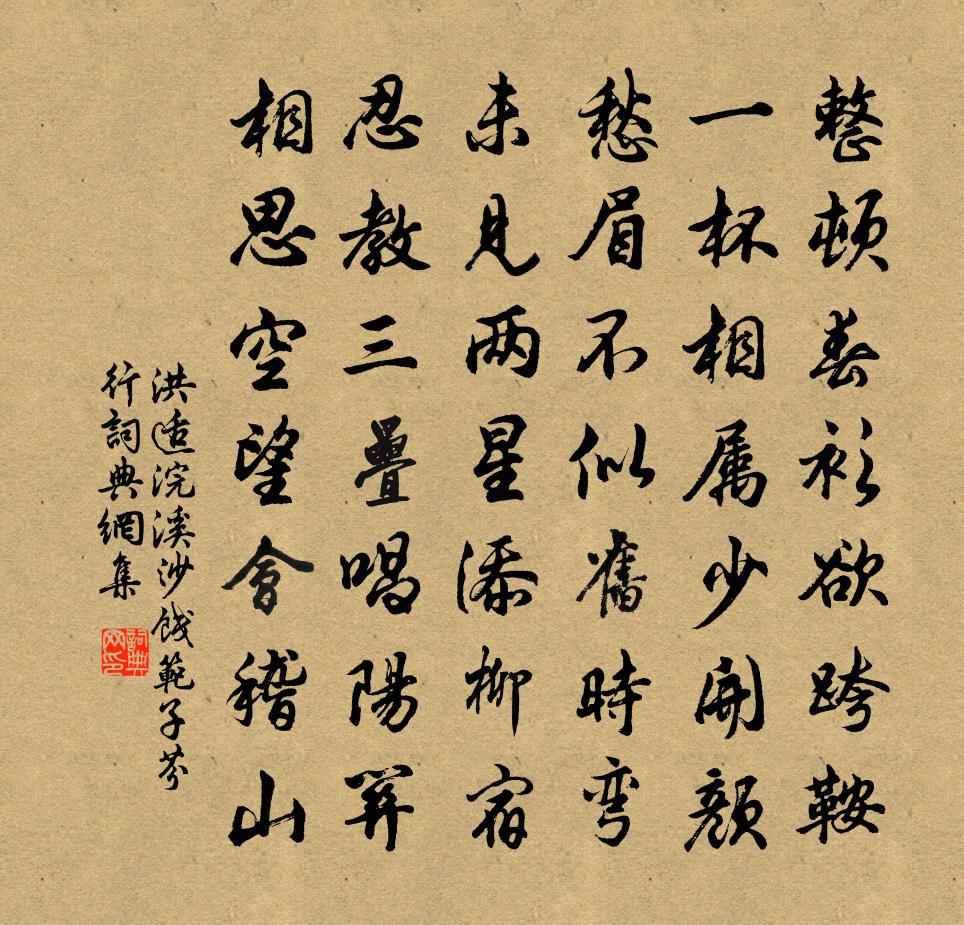 整頓春衫欲跨鞍
一杯相属少開顏
愁眉不似舊時彎
未見两星添柳宿
忍教三疊唱陽關
相思空望會稽山
洪适浣溪沙餞範子芬
行詞典網集
詞典网印